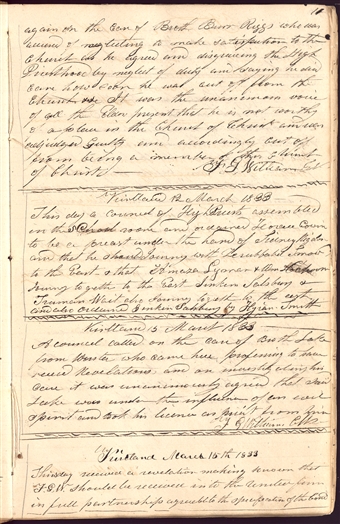 again on the Case of Broth Burr Riggs who was
accused of neglecting to make satisfaction to the
Church as he agreed and disgracing the High
Priesthood by neglect of duty and saying he did
care how soon he was cut off from the
Church It was the unanimous voice
of all the Elders present that he is not worthy
a place in the Church of Christ and was
adjudged guilty and accordingly cut of
from being a member of this Church
of Christ
F G Williams
Kirtland 12 March 1833
This day a council of High Priests assembled
in the School room and ordained Horace Cown
to be a priest under the hand of Sidney
and that he should Journey with
to the East & that Amasa Lyman &
Journey to geth to the East Jenkins Salsbury &
Truman Wait also Journey togeth to the east
and also ordained Jenkins Salsbury by Hyram Smith
Kirtland 15 March 1833
A council called on the case of Broth Lake
from Wooster who came here professing to have
recieved Revelations and on investigating his
case it was unanimously agreed that said
Lake was under the influence of an evil
spirit and that his licence as priest from him
F G Williams
Kirtland March 15th 1833
This day received a revelation making known that
F.G.W. should be received into the United firm
in full partnership agreeable to the specification of the bond